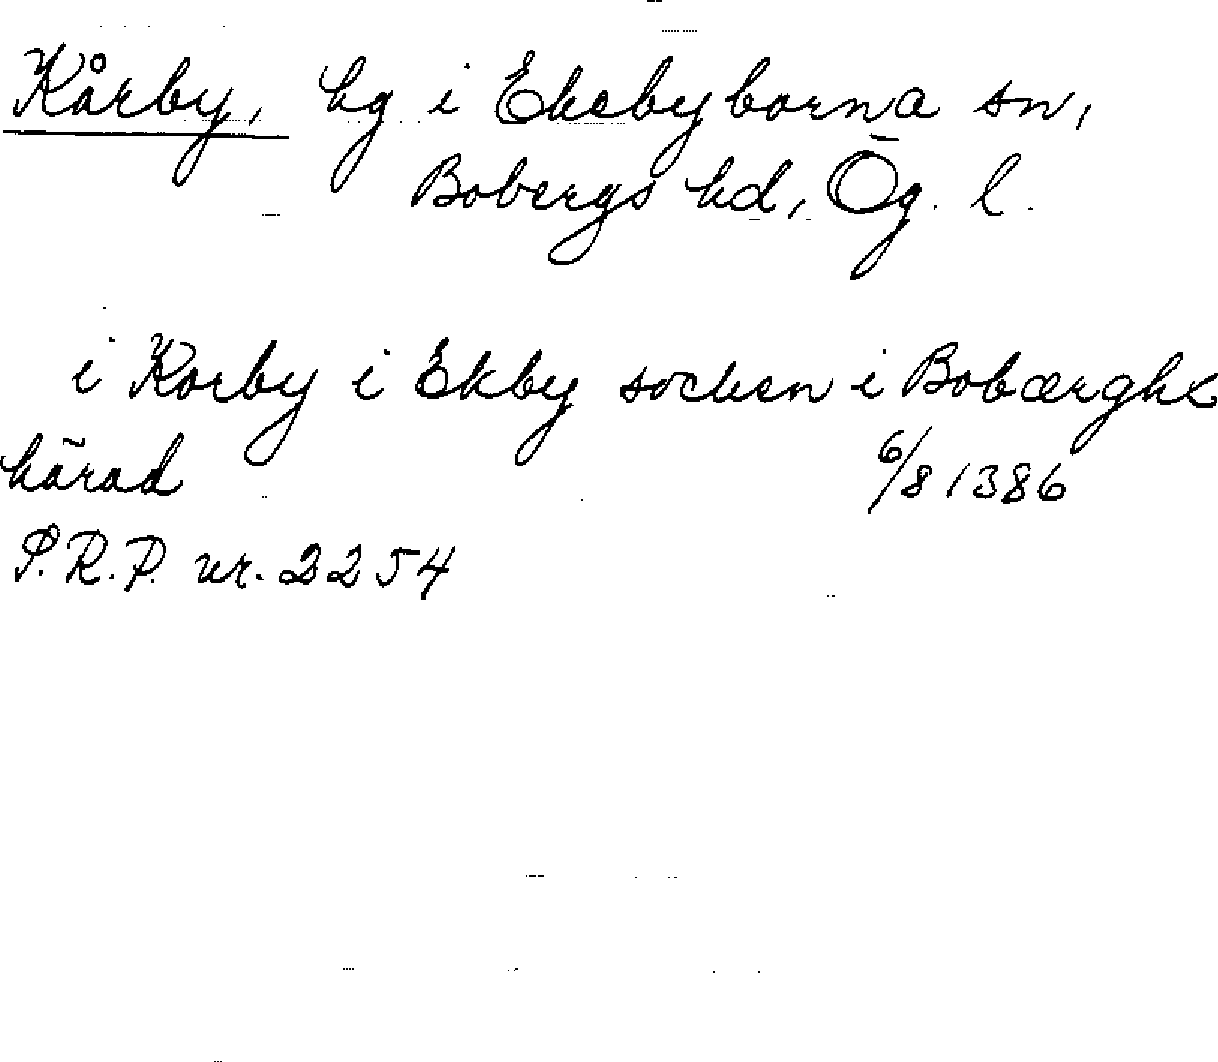 Kårby, hg i Ekebyborna sn,
Bobergs hd, Ög. l.
i Korby i Ekby socken i Bobærghx
härad 6/8 1386
P.R.P. nr. 2254